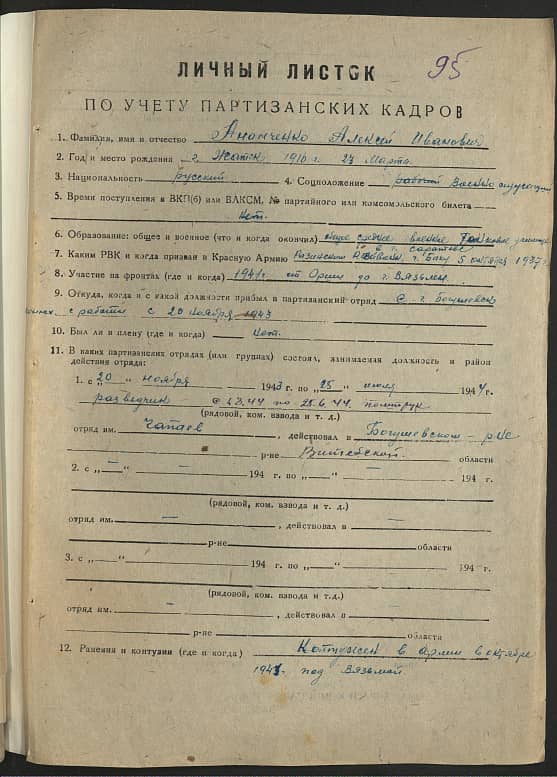 ЛИЧНЫЙ ЛИСТОК
95
ПО УЧЕТУ ПАРТИЗАНСКИХ КАДРОВ
1. Фамилия, имя и отчество Ананченко Алексей Иванович
2. Год и место рождения 1910 г. 23 Марта
3. Национальность русский 4. Соцположение рабочий
5. Время поступления в ВКП(б) или ВЛКСМ, № партийного или комсомольского билета
Нет.
6. Образование: общее и военное (что и когда окончил) общее среднее военное
в г. Саратове
7. Каким РВК и когда призван в Красную Армию г. Баку 5 октября 1937 г.
8. Участие на фронтах (где и когда) 1941г. от Орши до г. Вязьмы
9. Откуда, когда и с какой должности прибыл в партизанский отряд с г. Богушевск
с работы с 20 ноября 1943
10. Был ли в плену (где и когда) Нет.
11. В каких партизанских отрядах (или группах) состоял, занимаемая должность и район
действия отряда:
1. с „20 “ ноября 1943 г. по „25 “ июля 1944 г.
разведчик по 25.6.44. политрук
(рядовой, ком. взвода и т. д.)
отряд им. Чапаев , действовал в Богушевском – р-не
р-не Витебской. области
2. с „—“ — 194 г. по „—“ — 194 г.
(рядовой, ком. взвода и т. д.)
отряд им. — , действовал в —
р-не области
3. с „—“ 194 г. по „—“ 194 г.
(рядовой, ком. взвода и т. д.)
отряд им. — , действовал в —
р-не области
12. Ранения и контузии (где и когда) Контужен в армии в октябре
1941 под Вязьмой